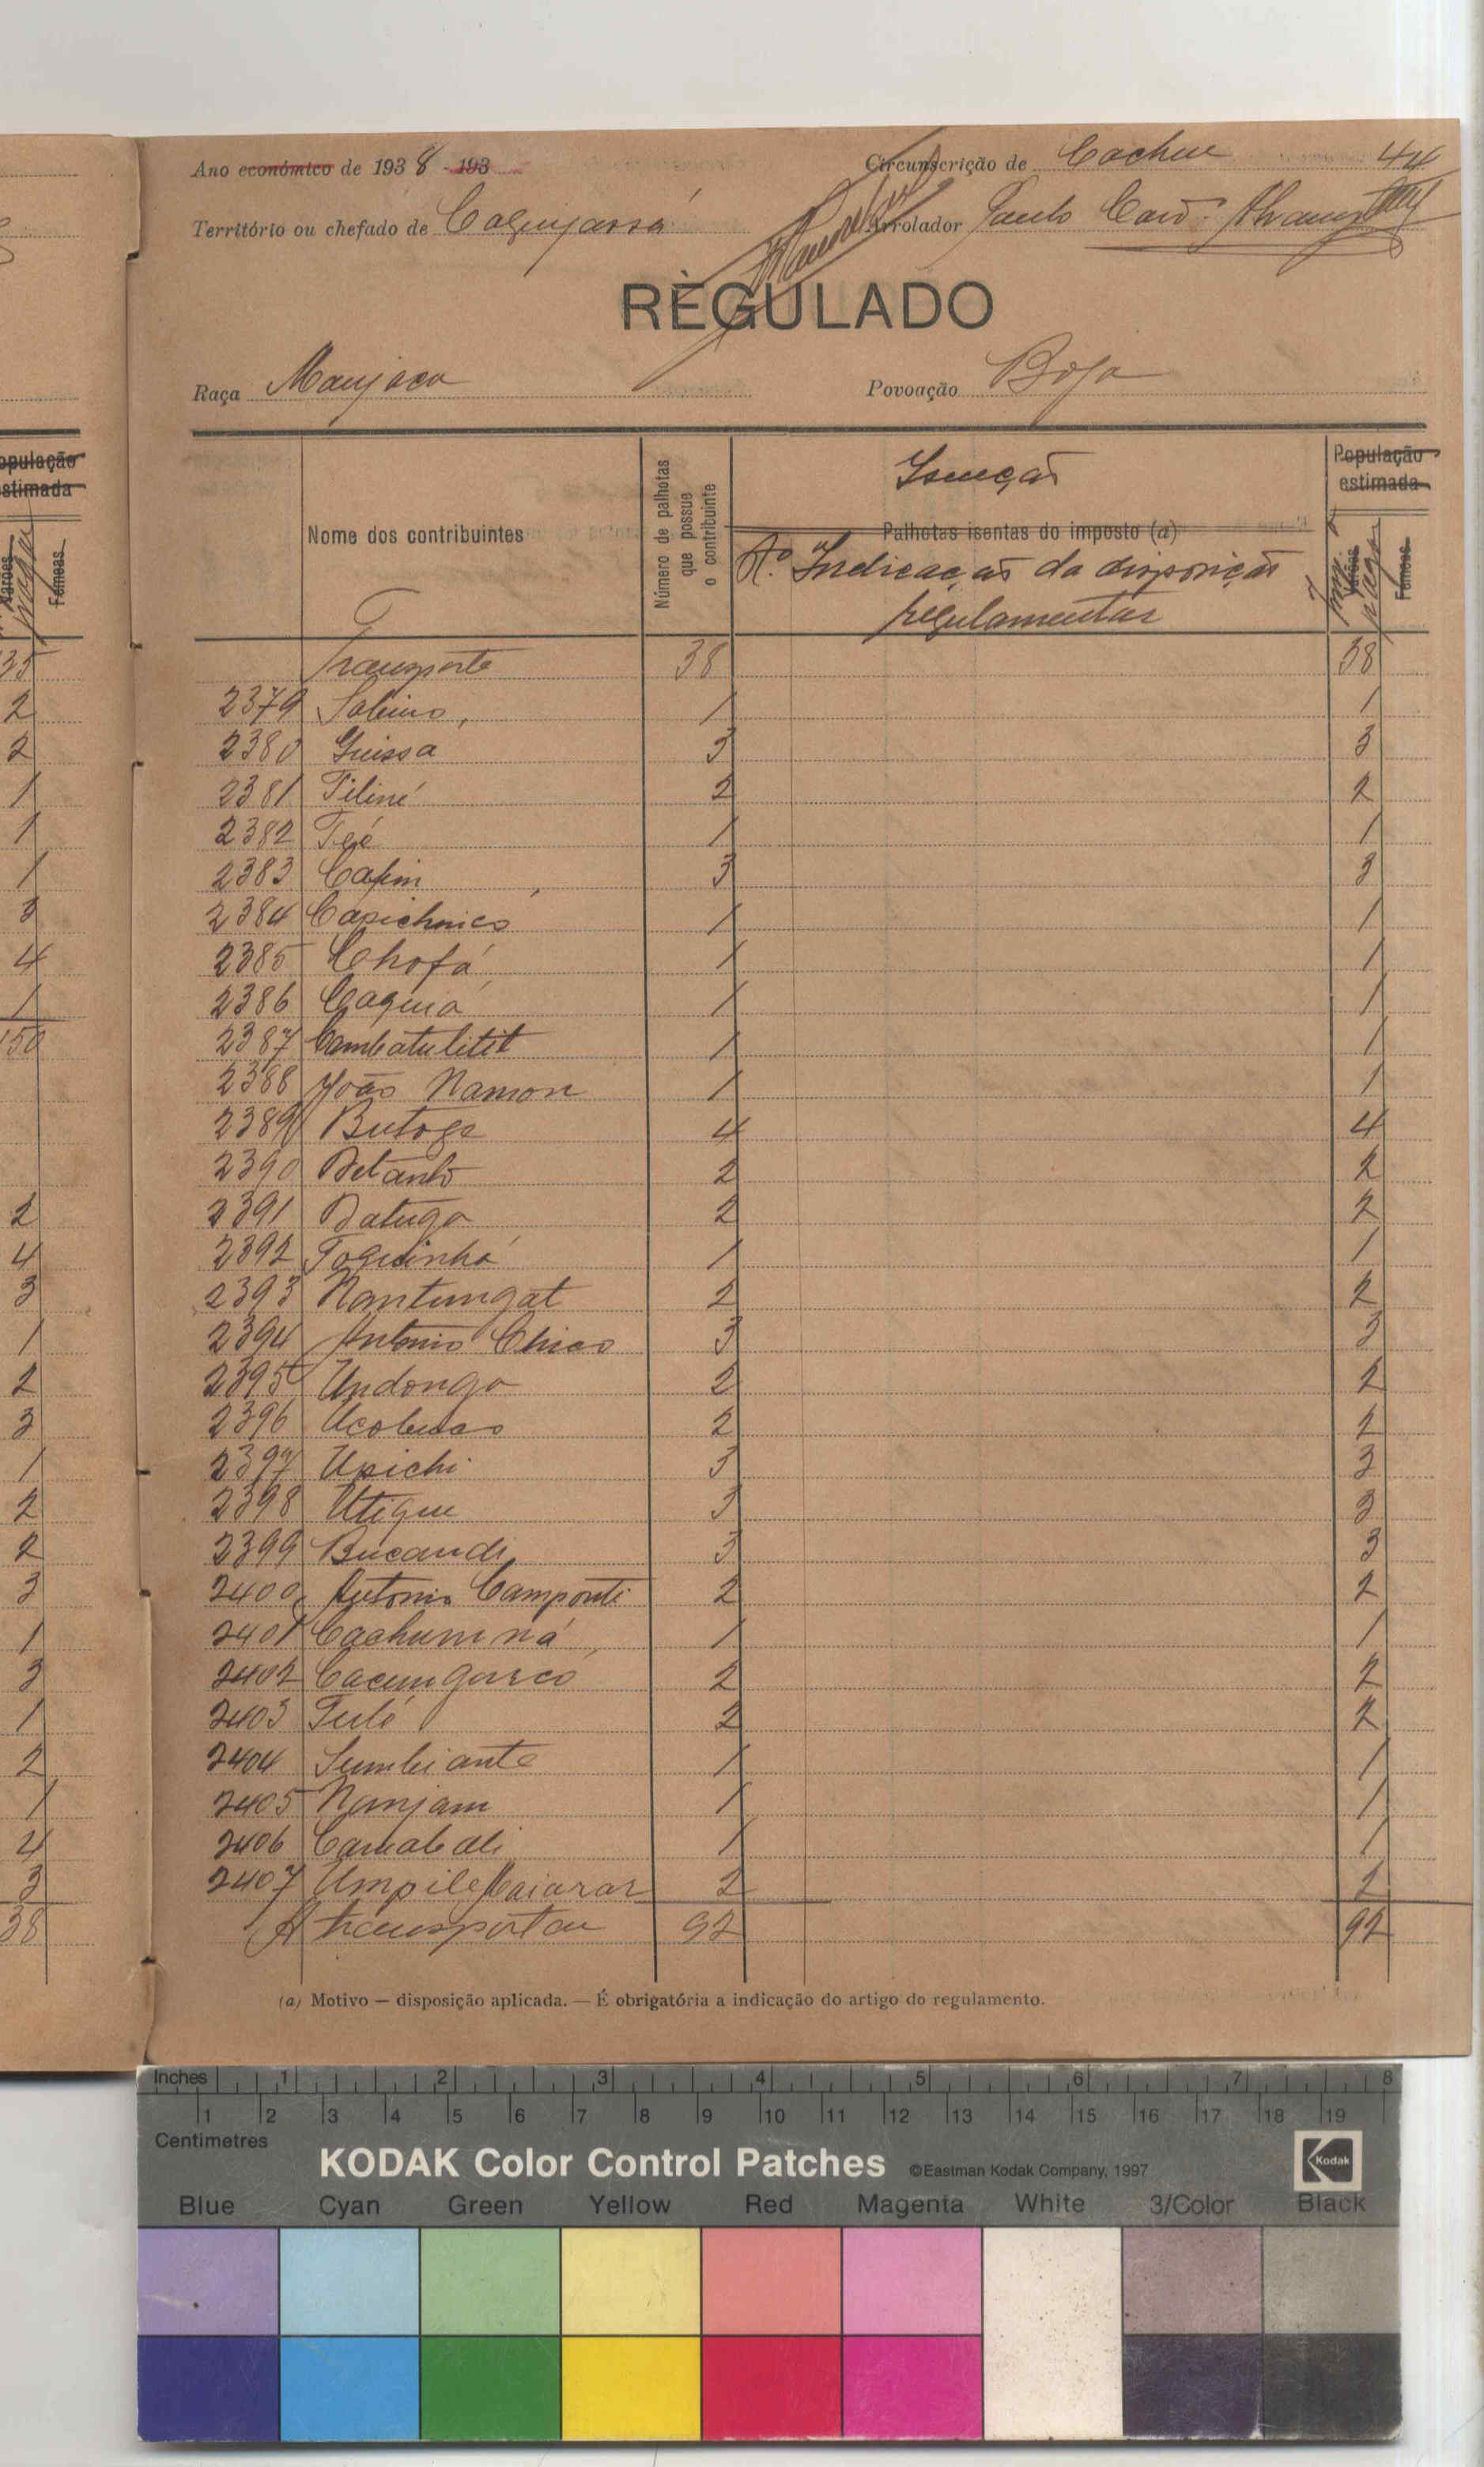 Ano económico de 1938 - 193
Circunscrição de Cacheu 44
Território ou chefado de
Arrolador Paulo
REGULADO
Raça Manjaca
Povoação Bofa
População
estimada
Varões
pago
Fémeas
35
2
2
1
1
1
3
4
1
150
2
4
3
1
2
3
1
2
2
3
1
3
1
2
1
4
3
38
Nome dos contribuintes
Número de palhotas
que possue
o contribuinte
Isenção
Palhotas isentas do imposto (a)
Nº Indicação da disposição
regulamentar
População
estimada
pago
Fémeas
Transporte 38 38
2379 Sabino 1 1
2380 Guissa 3 3
2381 Filiné 2 2
2382 1 1
2383 Cafim 3 3
2384 1 1
2385 Chofá 1 1
2386 Caquiá 1 1
2387 Cambatulitit 1 1
2388 João Namon 1 1
2389 Butoge 4 4
2390 2 2
2391 Datuga 2 2
2392 Toguinhá 1 1
2393 Nantungat 2 2
2394 Antonio Chico 3 3
2395 Undonga 2 2
2396 2 2
2397 Upichi 3 3
2398 Utique 3 3
2399 Bucandi 3 3
2400 Antonio Camponti 2 2
2401 Cachumná 1 1
2402 2 2
2403 Tuló 2 2
2404 Sumbiante 1 1
2405 Nanjam 1 1
2406 1 1
2407 Umpile 2 2
A transportar 92 92
(a) Motivo — disposição aplicada. — É obrigatória a indicação do artigo do regulamento.
Inches 1 2 3 4 5 6 7 8
1 2 3 4 5 6 7 8 9 10 11 12 13 14 15 16 17 18 19
Centimetres
KODAK Color Control Patches ©Eastman Kodak Company, 1997 Kodak
Blue Cyan Green Yellow Red Magenta White 3/Color Black